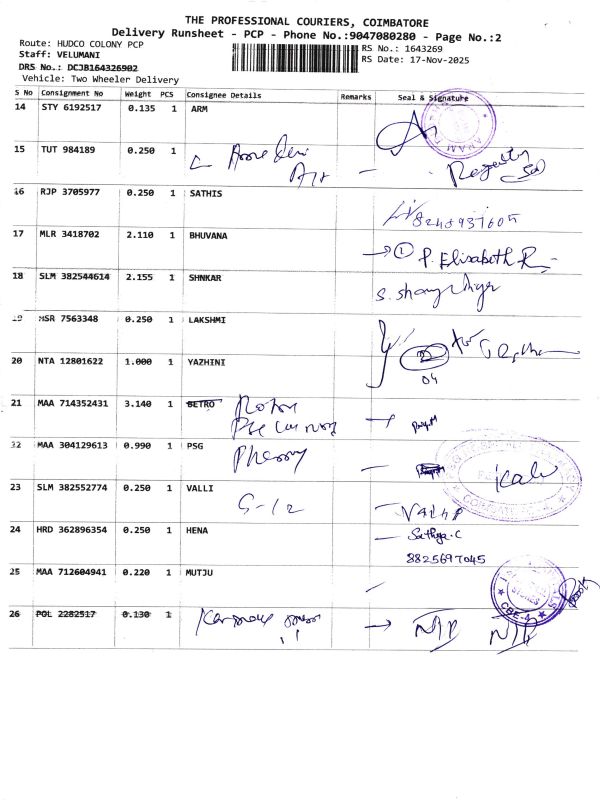 THE PROFESSIONAL COURIERS, COIMBATORE
Delivery Runsheet - PCP - Phone No.:9047080280 - Page No.:2
Route: HUDCO COLONY PCP
RS No.: 1643269
Staff: VELUMANI
RS Date: 17-Nov-2025
DRS No.: DCJB164326902
Vehicle: Two Wheeler Delivery
S No Consignment No Weight PCS Consignee Details Remarks Seal & Signature
14 STY 6192517 0.135 1 ARM
15 TUT 984189 0.250 1
16 RJP 3705977 0.250 1 SATHIS
8248937605
17 MLR 3418702 2.110 1 BHUVANA
P. Elisabeth R
18 SLM 382544614 2.155 1 SHNKAR
S. Shany
19 HSR 7563348 0.250 1 LAKSHMI
20 NTA 12801622 1.000 1 YAZHINI
04
21 MAA 714352431 3.140 1 BETRO
22 MAA 304129613 0.990 1 PSG
Kalai
23 SLM 382552774 0.250 1 VALLI
G-12
24 HRD 362896354 0.250 1 HENA
Sathya.C
8825697045
25 MAA 712604941 0.220 1 MUTJU
STORES
CBE-4
26 POL 2282517 0.130 1